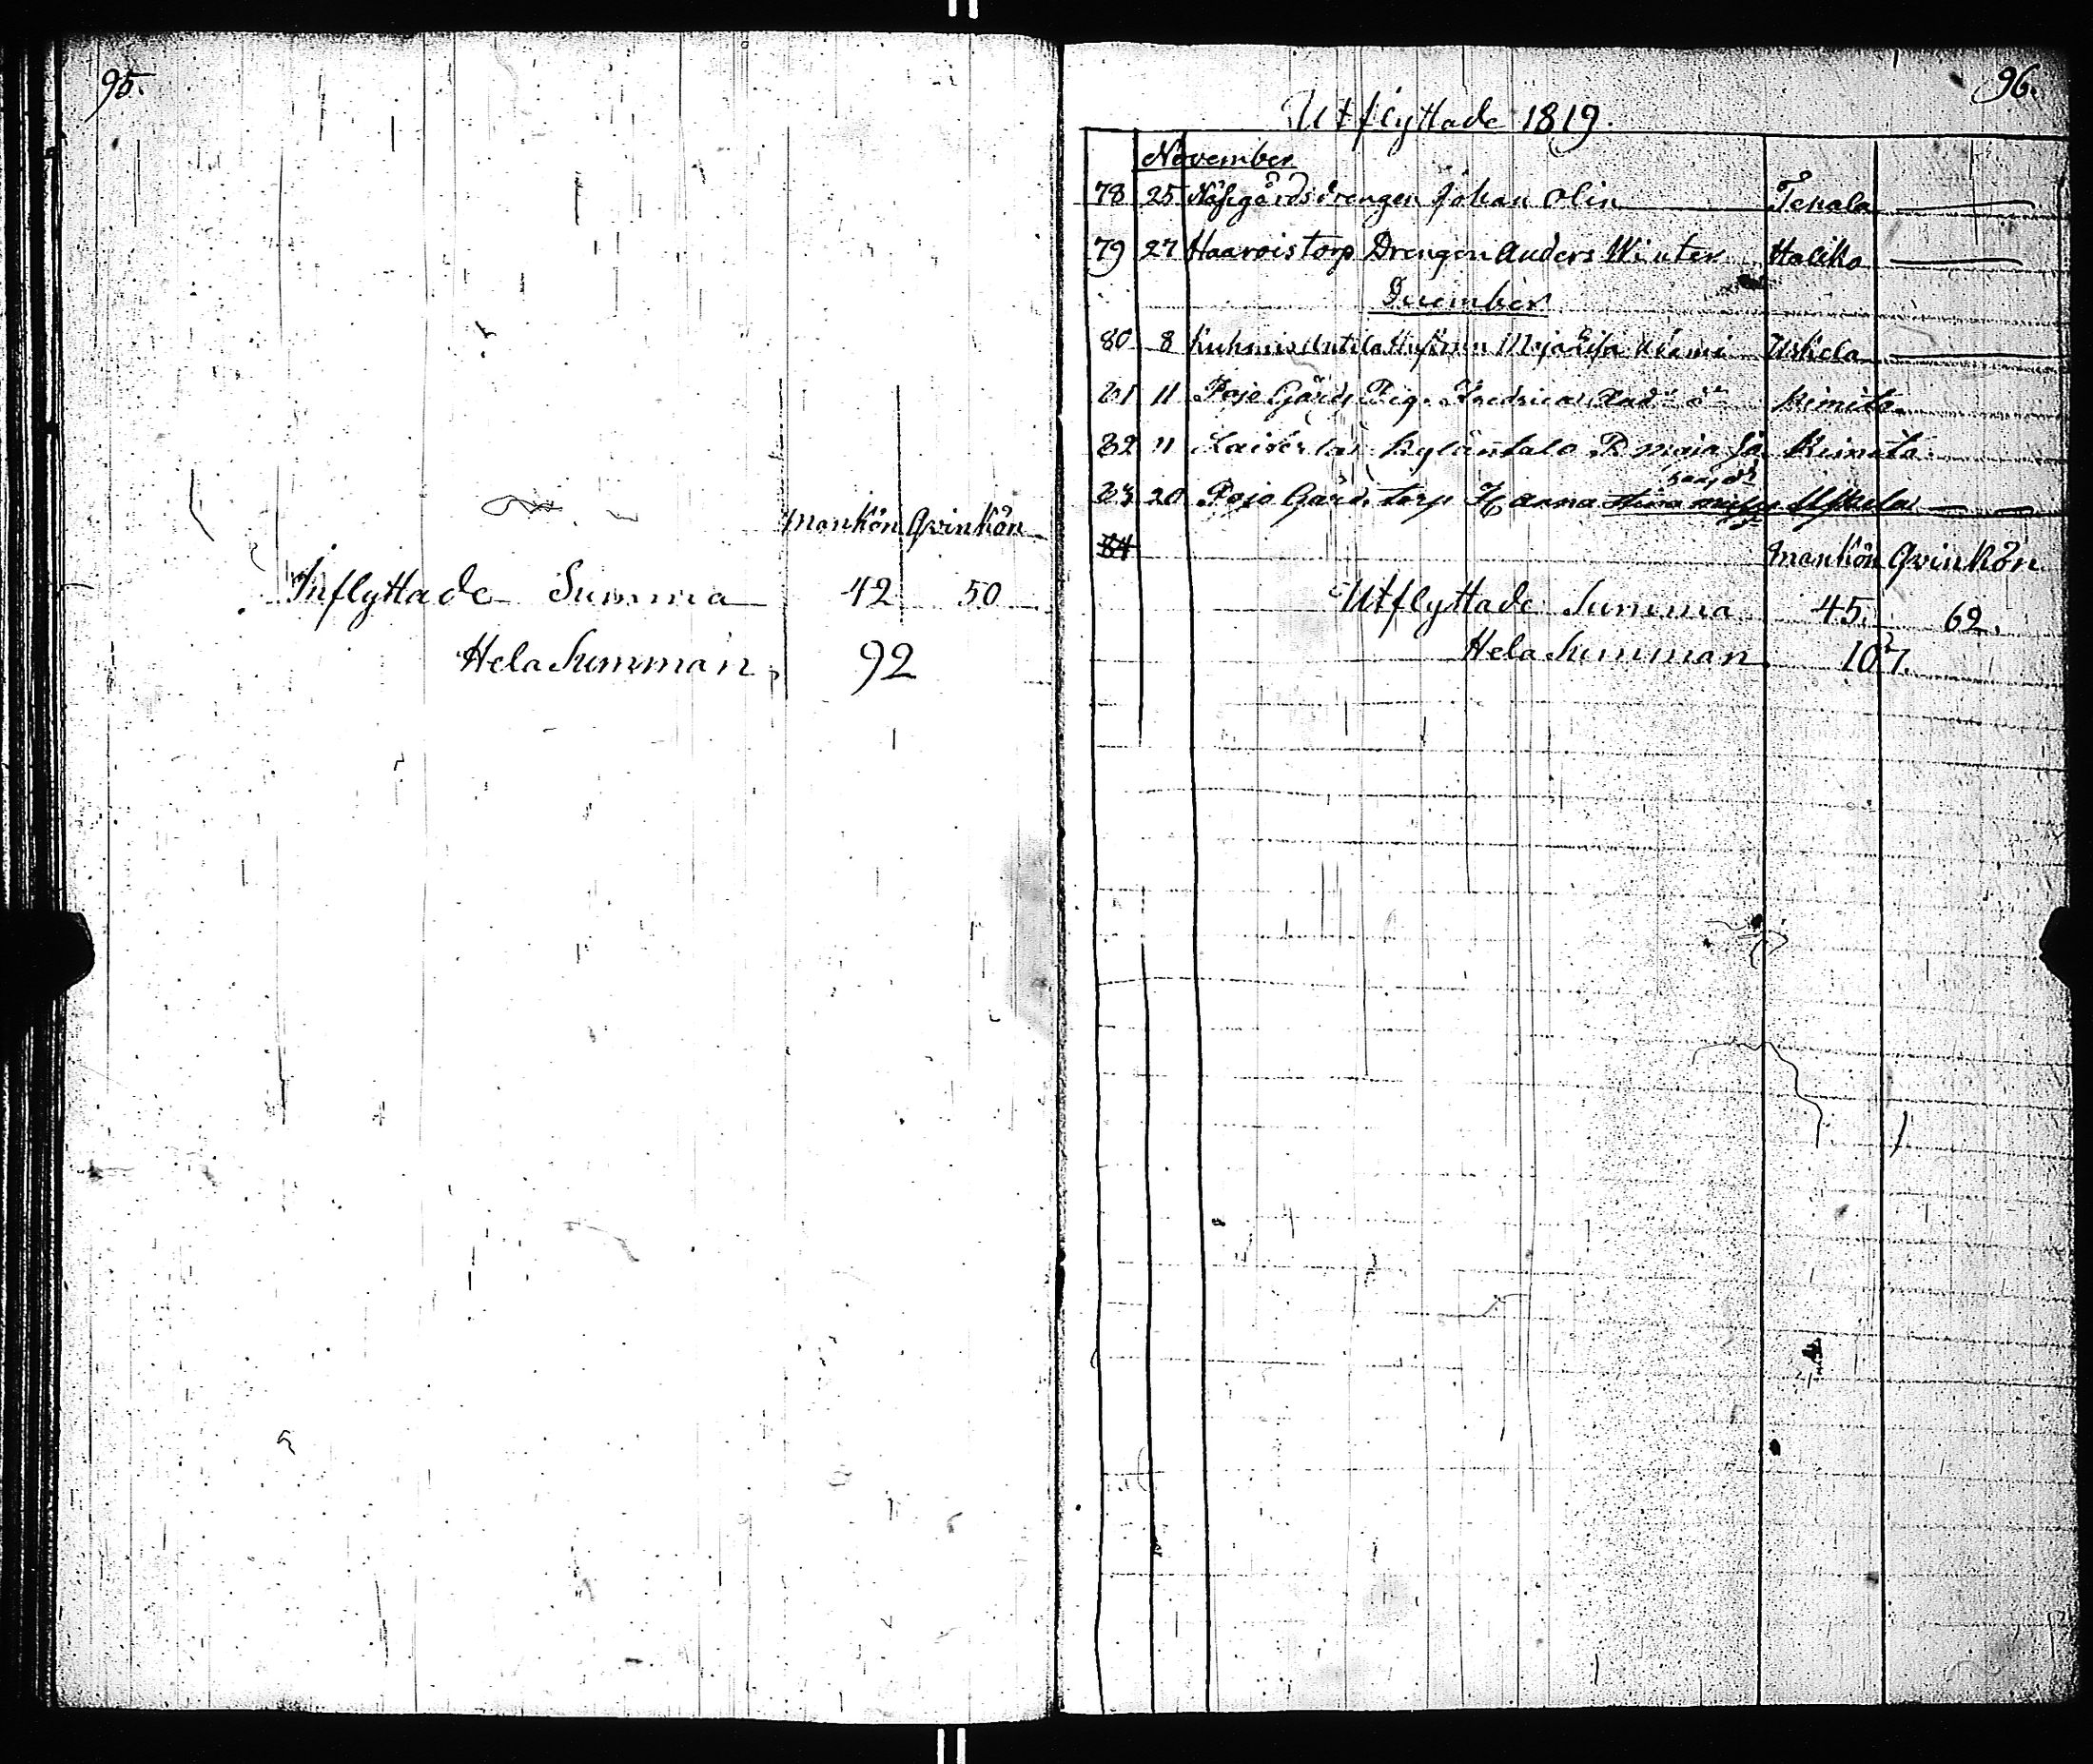 95.
Mankön Qvinkön
Inflyttade Summa 42 50
Hela Summan, 92
96.
Utflyttade 1819.
November
78 25 Näsegårds drengen Johan Olin Tenala
79 27 Haarois torp Drengen Anders Winter Haliko
December
80 8 Maja Uskela
81 11 Poje Gårds Pig. Fredrica Kimito
82 11 Kyläntalo P. Maja Kimito
83 20 Pojo Gårds torp H Anna Uskela
84
Mankön Qvinkön
Utflyttade Summa 45. 62.
Hela Summan 107.